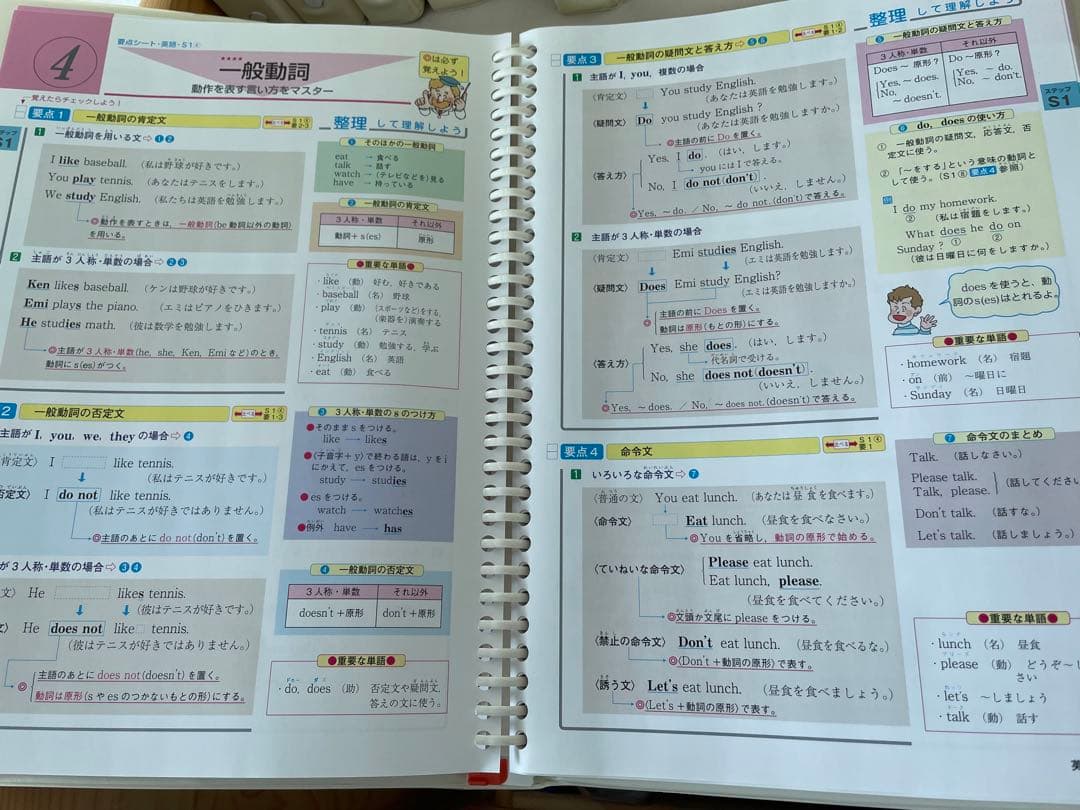 4
要点シート・英語・S1④
一般動詞
動作を表す言い方をマスター
◎は必ず
覚えよう！
覚えたらチェックしよう！
S1
要点1 一般動詞の肯定文
S1④
要2・3
整理して理解しよう
1 一般動詞を用いる文⇨❶❷
I like baseball. （私は野球が好きです。）
You play tennis. （あなたはテニスをします。）
We study English. （私たちは英語を勉強します。）
◎動作を表すときは，一般動詞(be動詞以外の動詞)
を用いる。
2 主語が3人称・単数の場合⇨❷❸
Ken likes baseball. （ケンは野球が好きです。）
Emi plays the piano. （エミはピアノをひきます。）
He studies math. （彼は数学を勉強します。）
◎主語が3人称・単数(he, she, Ken, Emiなど)のとき，
動詞にs(es)がつく。
❶ そのほかの一般動詞
eat → 食べる
talk → 話す
watch → （テレビなどを）見る
have → 持っている
❷ 一般動詞の肯定文
3人称・単数 それ以外
動詞+s(es) 原形
●重要な単語●
・like （動） 好む，好きである
・baseball （名） 野球
・play （動） （スポーツなど）をする，
（楽器を）演奏する
・tennis （名） テニス
・study （動） 勉強する，学ぶ
・English （名） 英語
・eat （動） 食べる
2 一般動詞の否定文
S1④
要1・3
主語がI, you, we, theyの場合⇨❹
肯定文〉 I like tennis.
（私はテニスが好きです。）
否定文〉 I do not like tennis.
（私はテニスが好きではありません。）
◎主語のあとにdo not(don't)を置く。
が3人称・単数の場合⇨❸❹
文〉 He likes tennis.
（彼はテニスが好きです。）
文〉 He does not like tennis.
（彼はテニスが好きではありません。）
◎主語のあとにdoes not(doesn't)を置く。
動詞は原形(sやesのつかないもとの形)にする。
❸ 3人称・単数のsのつけ方
●そのままsをつける。
like → likes
●(子音字+y)で終わる語は，yをi
にかえて，esをつける。
study → studies
●esをつける。
watch → watches
●例外 have → has
❹ 一般動詞の否定文
3人称・単数 それ以外
doesn't+原形 don't+原形
●重要な単語●
・do, does （助） 否定文や疑問文，
答えの文に使う。
要点3 一般動詞の疑問文と答え方⇨❺❻
S1④
要1・2
整理して理解しよう
1 主語がI, you, 複数の場合
〈肯定文〉 You study English.
（あなたは英語を勉強します。）
〈疑問文〉 Do you study English ?
（あなたは英語を勉強しますか。）
◎主語の前にDoを置く。
〈答え方〉 Yes, I do. （はい，します。）
youにはIで答える。
No, I do not(don't).
（いいえ，しません。）
◎Yes, ～ do. / No, ～ do not.(don't)で答える。
2 主語が3人称・単数の場合
〈肯定文〉 Emi studies English.
（エミは英語を勉強します。）
〈疑問文〉 Does Emi study English?
（エミは英語を勉強しますか。）
◎主語の前にDoesを置く。
動詞は原形(もとの形)にする。
〈答え方〉 Yes, she does. （はい，します。）
代名詞で受ける。
No, she does not(doesn't).
（いいえ，しません。）
◎Yes, ～ does. / No, ～ does not.(doesn't)で答える。
3人称・単数 それ以外
Does ～ 原形？ Do ～ 原形？
Yes, ～ does. Yes, ～ do.
No, ～ doesn't. No, ～ don't.
ステップ
S1
❻ do, doesの使い方
① 一般動詞の疑問文，応答文，否
定文に使う。
② 「～をする」という意味の動詞と
して使う。(S1⑧要点4参照)
例 I do my homework.
②
（私は宿題をします。）
What does he do on
Sunday ? ① ②
（彼は日曜日に何をしますか。）
doesを使うと，動
詞のs(es)はとれるよ。
●重要な単語●
・homework （名） 宿題
・on （前） ～曜日に
・Sunday （名） 日曜日
要点4 命令文
S1④
要1
1 いろいろな命令文⇨❼
〈普通の文〉 You eat lunch. （あなたは昼食を食べます。）
〈命令文〉 Eat lunch. （昼食を食べなさい。）
◎Youを省略し，動詞の原形で始める。
〈ていねいな命令文〉 Please eat lunch.
Eat lunch, please.
（昼食を食べてください。）
◎文頭か文尾にpleaseをつける。
〈禁止の命令文〉 Don't eat lunch. （昼食を食べるな。）
◎〈Don't+動詞の原形〉で表す。
〈誘う文〉 Let's eat lunch. （昼食を食べましょう。）
◎〈Let's+動詞の原形〉で表す。
❼ 命令文のまとめ
Talk. （話しなさい。）
Please talk.
Talk, please. （話してください
Don't talk. （話すな。）
Let's talk. （話しましょう。）
●重要な単語●
・lunch （名） 昼食
・please （動） どうぞ～
さい
・let's ～しましょう
・talk （動） 話す
英